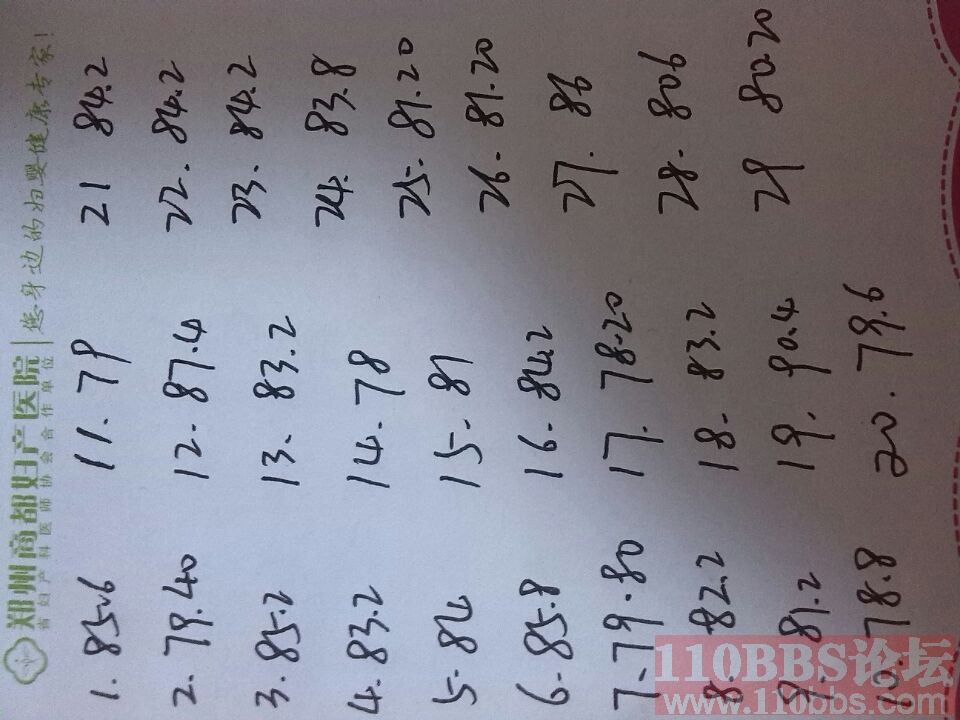 郑州商都妇产医院 | 您身边的妇婴健康专家!
省妇产科医师协会合作单位
1. 85.6
2. 79.40
3. 85.2
4. 83.2
5. 84
6. 85.8
7. 79.80
8. 82.2
9. 81.2
10. 78.8
11. 79
12. 87.4
13. 83.2
14. 78
15. 81
16. 84.2
17. 78.20
18. 83.2
19. 90.4
20. 79.6
21 84.2
22. 84.2
23. 84.2
24. 83.8
25. 81.20
26. 81.20
27. 86
28. 80.6
29 80.20
110BBS论坛
www.110bbs.com